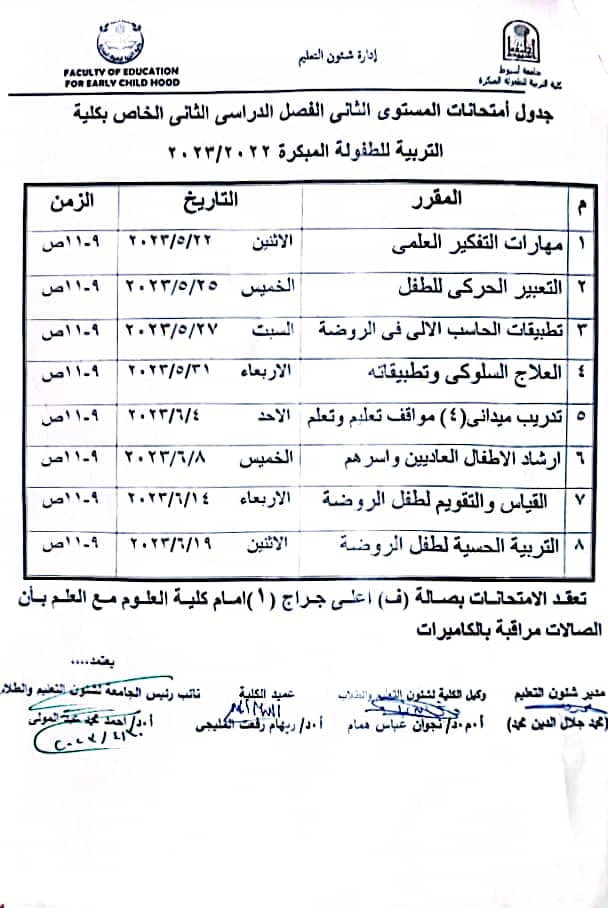 FACULTY OF EDUCATION
FOR EARLY CHILD HOOD
إدارة شئون التعليم
جامعة أسيوط
كلية التربية للطفولة المبكرة
جدول أمتحانات المستوى الثانى الفصل الدراسى الثانى الخاص بكلية
التربية للطفولة المبكرة ٢٠٢٣/٢٠٢٢
م المقرر التاريخ الزمن
١ مهارات التفكير العلمى الاثنين ٢٠٢٣/٥/٢٢ ٩-١١ص
٢ التعبير الحركى للطفل الخميس ٢٠٢٣/٥/٢٥ ٩-١١ص
٣ تطبيقات الحاسب الالى فى الروضة السبت ٢٠٢٣/٥/٢٧ ٩-١١ص
٤ العلاج السلوكى وتطبيقاته الاربعاء ٢٠٢٣/٥/٣١ ٩-١١ص
٥ تدريب ميدانى(٤) مواقف تعليم وتعلم الاحد ٢٠٢٣/٦/٤ ٩-١١ص
٦ ارشاد الاطفال العاديين واسرهم الخميس ٢٠٢٣/٦/٨ ٩-١١ص
٧ القياس والتقويم لطفل الروضة الاربعاء ٢٠٢٣/٦/١٤ ٩-١١ص
٨ التربية الحسية لطفل الروضة الاثنين ٢٠٢٣/٦/١٩ ٩-١١ص
تعقد الامتحانات بصالة (ف) اعلى جراج (١)امام كلية العلوم مع العلم بأن
الصالات مراقبة بالكاميرات
يعتمد....
مدير شئون التعليم وكيل الكلية لشئون التعليم والطلاب عميد الكلية نائب رئيس الجامعة لشئون التعليم والطلاب
(محمد جلال الدين محمد) أ.م.د/ نجوان عباس همام أ.د/ ريهام رفعت المليجى أ.د/ احمد محمد عبد المولى